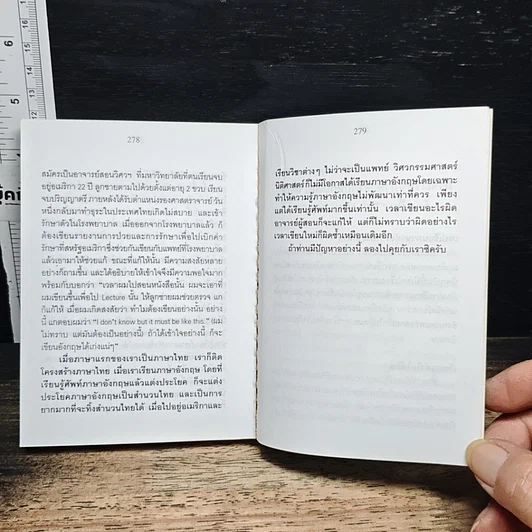 278
สมัครเป็นอาจารย์สอนวิศวฯ ที่มหาวิทยาลัยที่ตนเรียนจบ
อยู่อเมริกา 22 ปี ลูกชายตามไปด้วยตั้งแต่อายุ 2 ขวบ เรียน
จบปริญญาตรี ภายหลังได้รับตำแหน่งรองศาสตราจารย์ วัน
หนึ่งกลับมาทำธุระในประเทศไทยเกิดไม่สบาย และเข้า
รักษาตัวในโรงพยาบาล เมื่อออกจากโรงพยาบาลแล้ว ก็
ต้องเขียนรายงานการป่วยและการรักษาเพื่อไปเบิกค่า
รักษาที่สหรัฐอเมริกาซึ่งช่วยกันเขียนกับแพทย์ที่โรงพยาบาล
แล้วเอามาให้ช่วยแก้ ขณะที่แก้ให้นั้น มีความสงสัยหลาย
อย่างก็ถามขึ้น และได้อธิบายให้เข้าใจจึงมีความพอใจมาก
พร้อมกับบอกว่า "เวลาผมไปสอนหนังสือนั้น ผมจะเอาที่
ผมเขียนขึ้นเพื่อไป Lecture นั้น ให้ลูกชายผมช่วยตรวจ แก
ก็แก้ให้ เมื่อผมเกิดสงสัยว่า ทำไมต้องเขียนอย่างนั้น อย่าง
นี้ แกตอบผมว่า "I don't know but it must be like this." (ผม
ไม่ทราบ แต่มันต้องเป็นอย่างนี้) ถ้าได้เข้าใจอย่างนี้ ก็จะ
เขียนอังกฤษได้เก่งแน่ๆ"
เมื่อภาษาแรกของเราเป็นภาษาไทย เราก็ติด
โครงสร้างภาษาไทย เมื่อเราเรียนภาษาอังกฤษ โดยที่
เรียนรู้ศัพท์ภาษาอังกฤษแล้วแต่งประโยค ก็จะแต่ง
ประโยคภาษาอังกฤษเป็นสำนวนไทย และเป็นการ
ยากมากที่จะทิ้งสำนวนไทยได้ เมื่อไปอยู่อเมริกาและ
279
เรียนวิชาต่างๆ ไม่ว่าจะเป็นแพทย์ วิศวกรรมศาสตร์
นิติศาสตร์ก็ไม่มีโอกาสได้เรียนภาษาอังกฤษโดยเฉพาะ
ทำให้ความรู้ภาษาอังกฤษไม่พัฒนาเท่าที่ควร เพียง
แต่ได้เรียนรู้ศัพท์มากขึ้นเท่านั้น เวลาเขียนอะไรผิด
อาจารย์ผู้สอนก็จะแก้ให้ แต่ก็ไม่ทราบว่าผิดอย่างไร
เวลาเขียนใหม่ก็ผิดซ้ำเหมือนเดิมอีก
ถ้าท่านมีปัญหาอย่างนี้ ลองไปคุยกับเราซิครับ
6
5